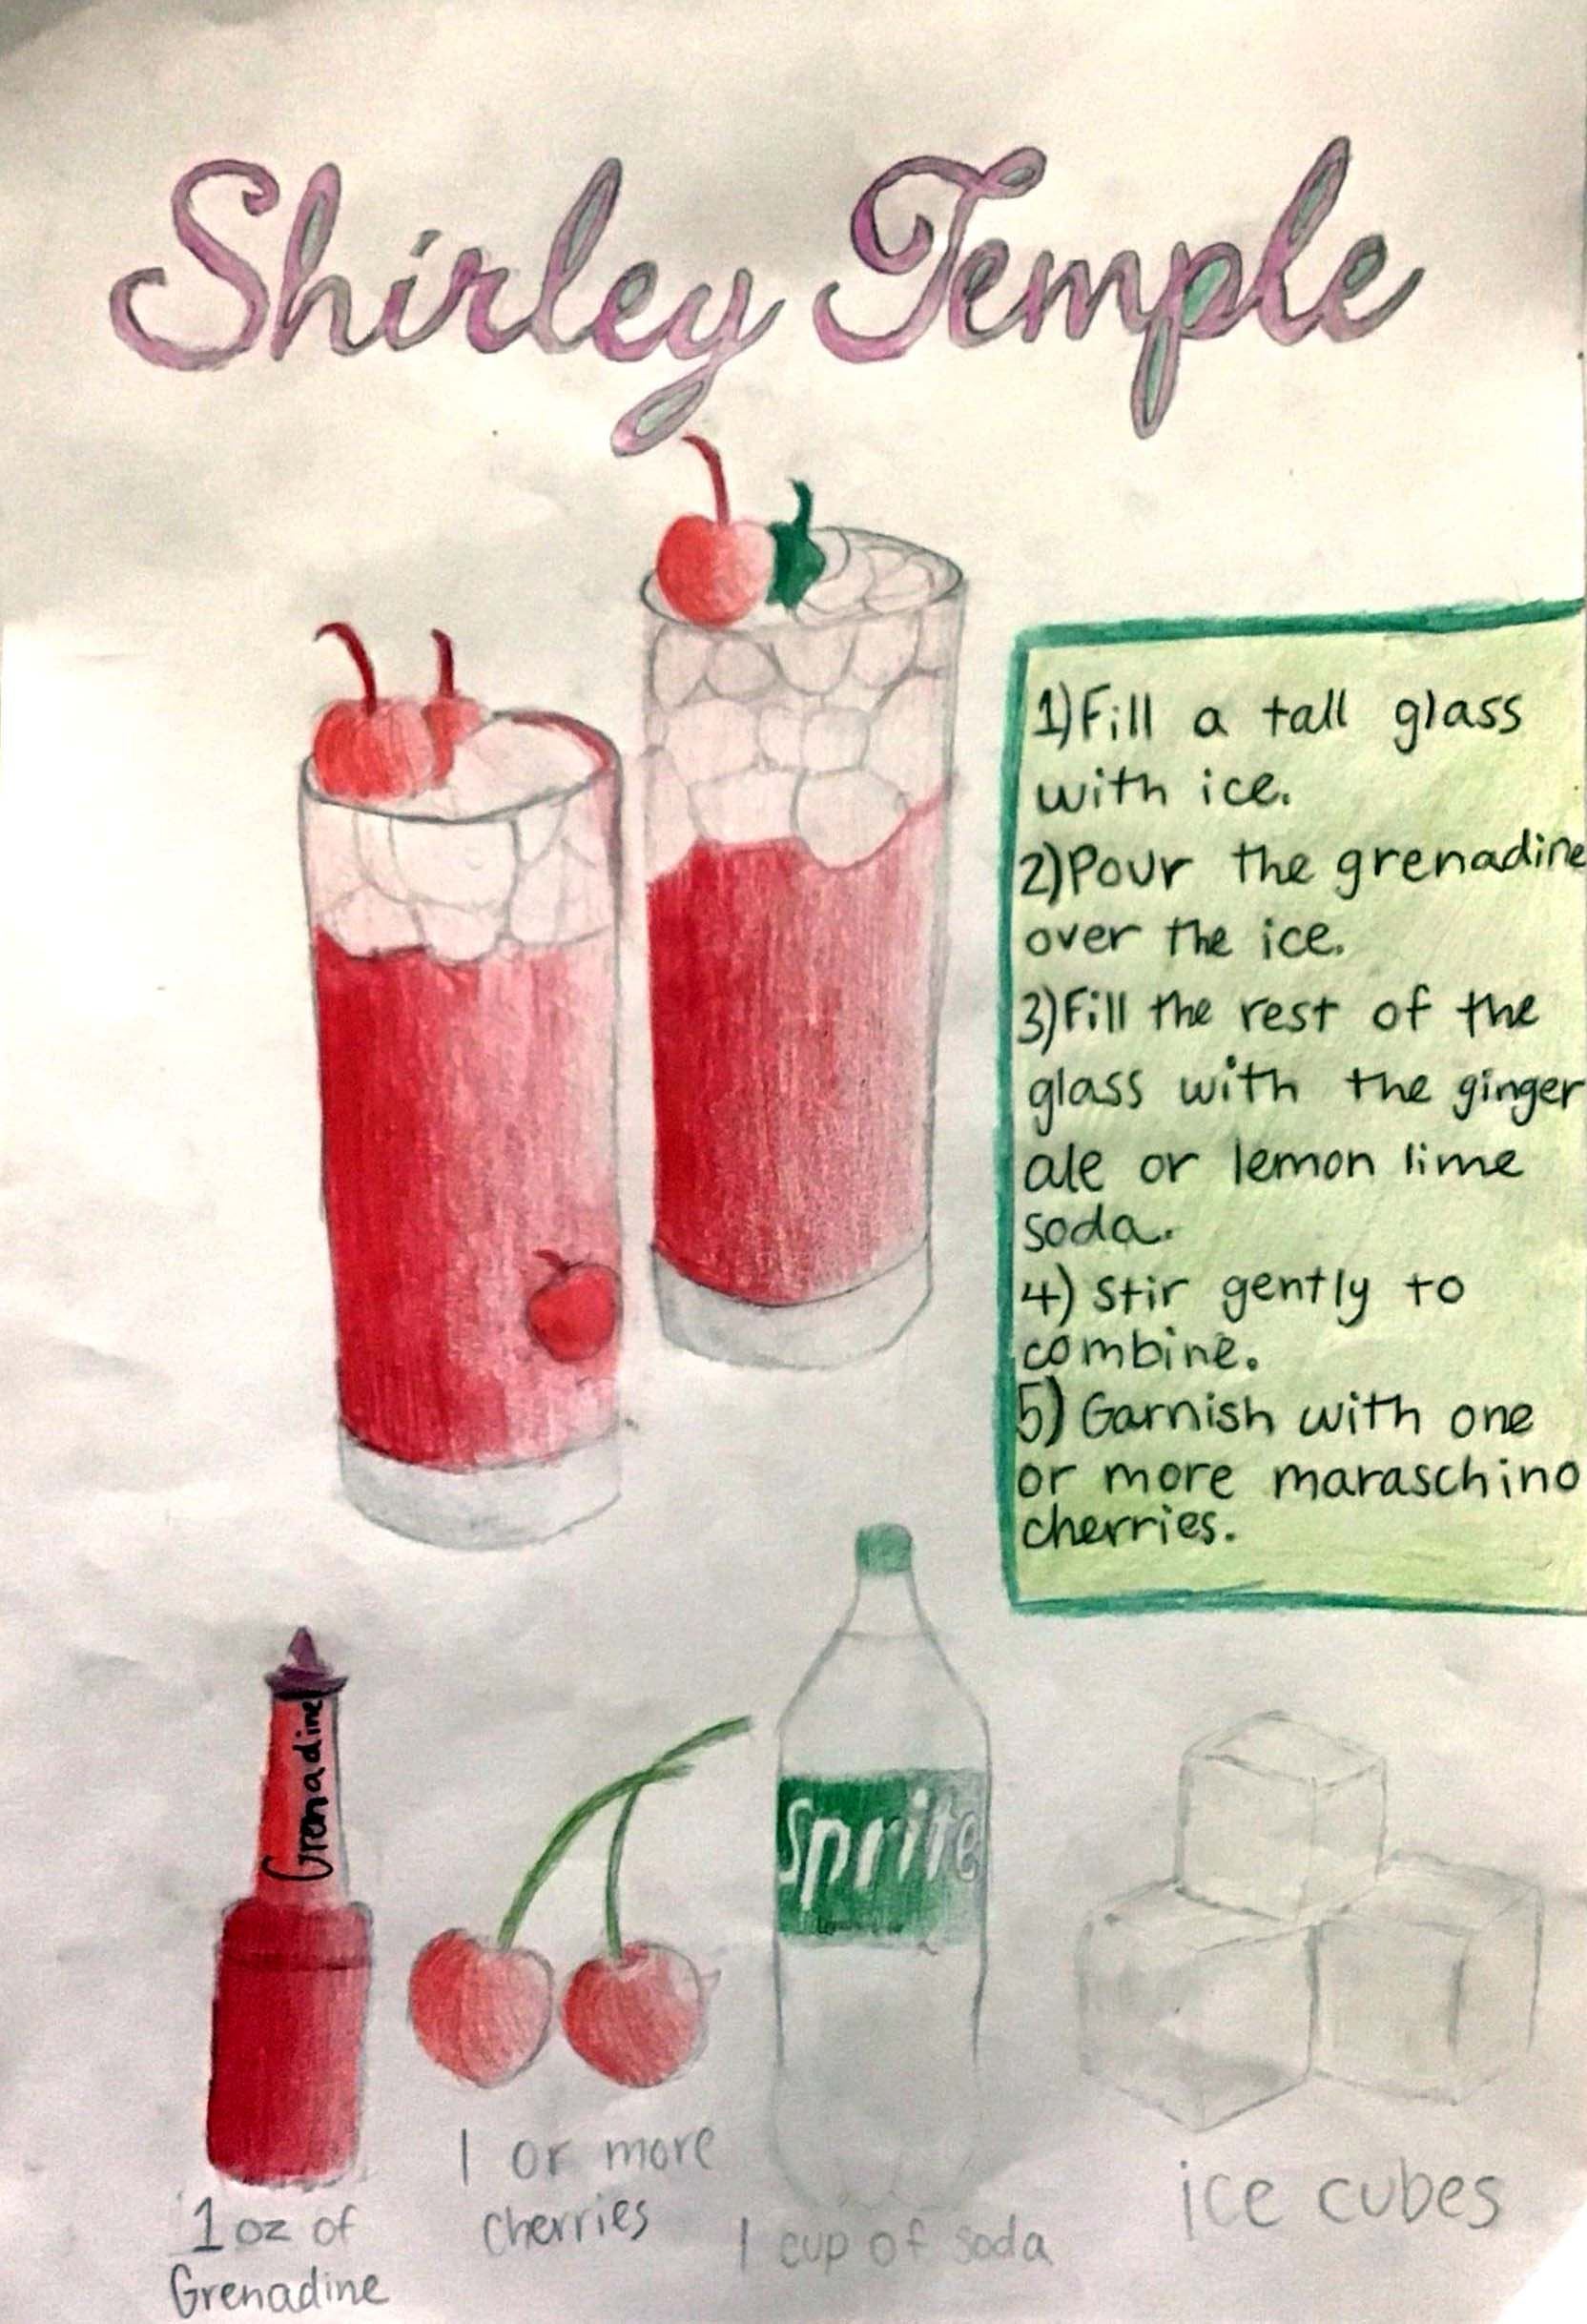 Shirley Temple
1) Fill a tall glass
with ice.
2) Pour the grenadine
over the ice.
3) Fill the rest of the
glass with the ginger
ale or lemon lime
soda.
4) Stir gently to
combine.
5) Garnish with one
or more maraschino
cherries.
Grenadine
Sprite
1 oz of
Grenadine
1 or more
cherries
1 cup of soda
ice cubes